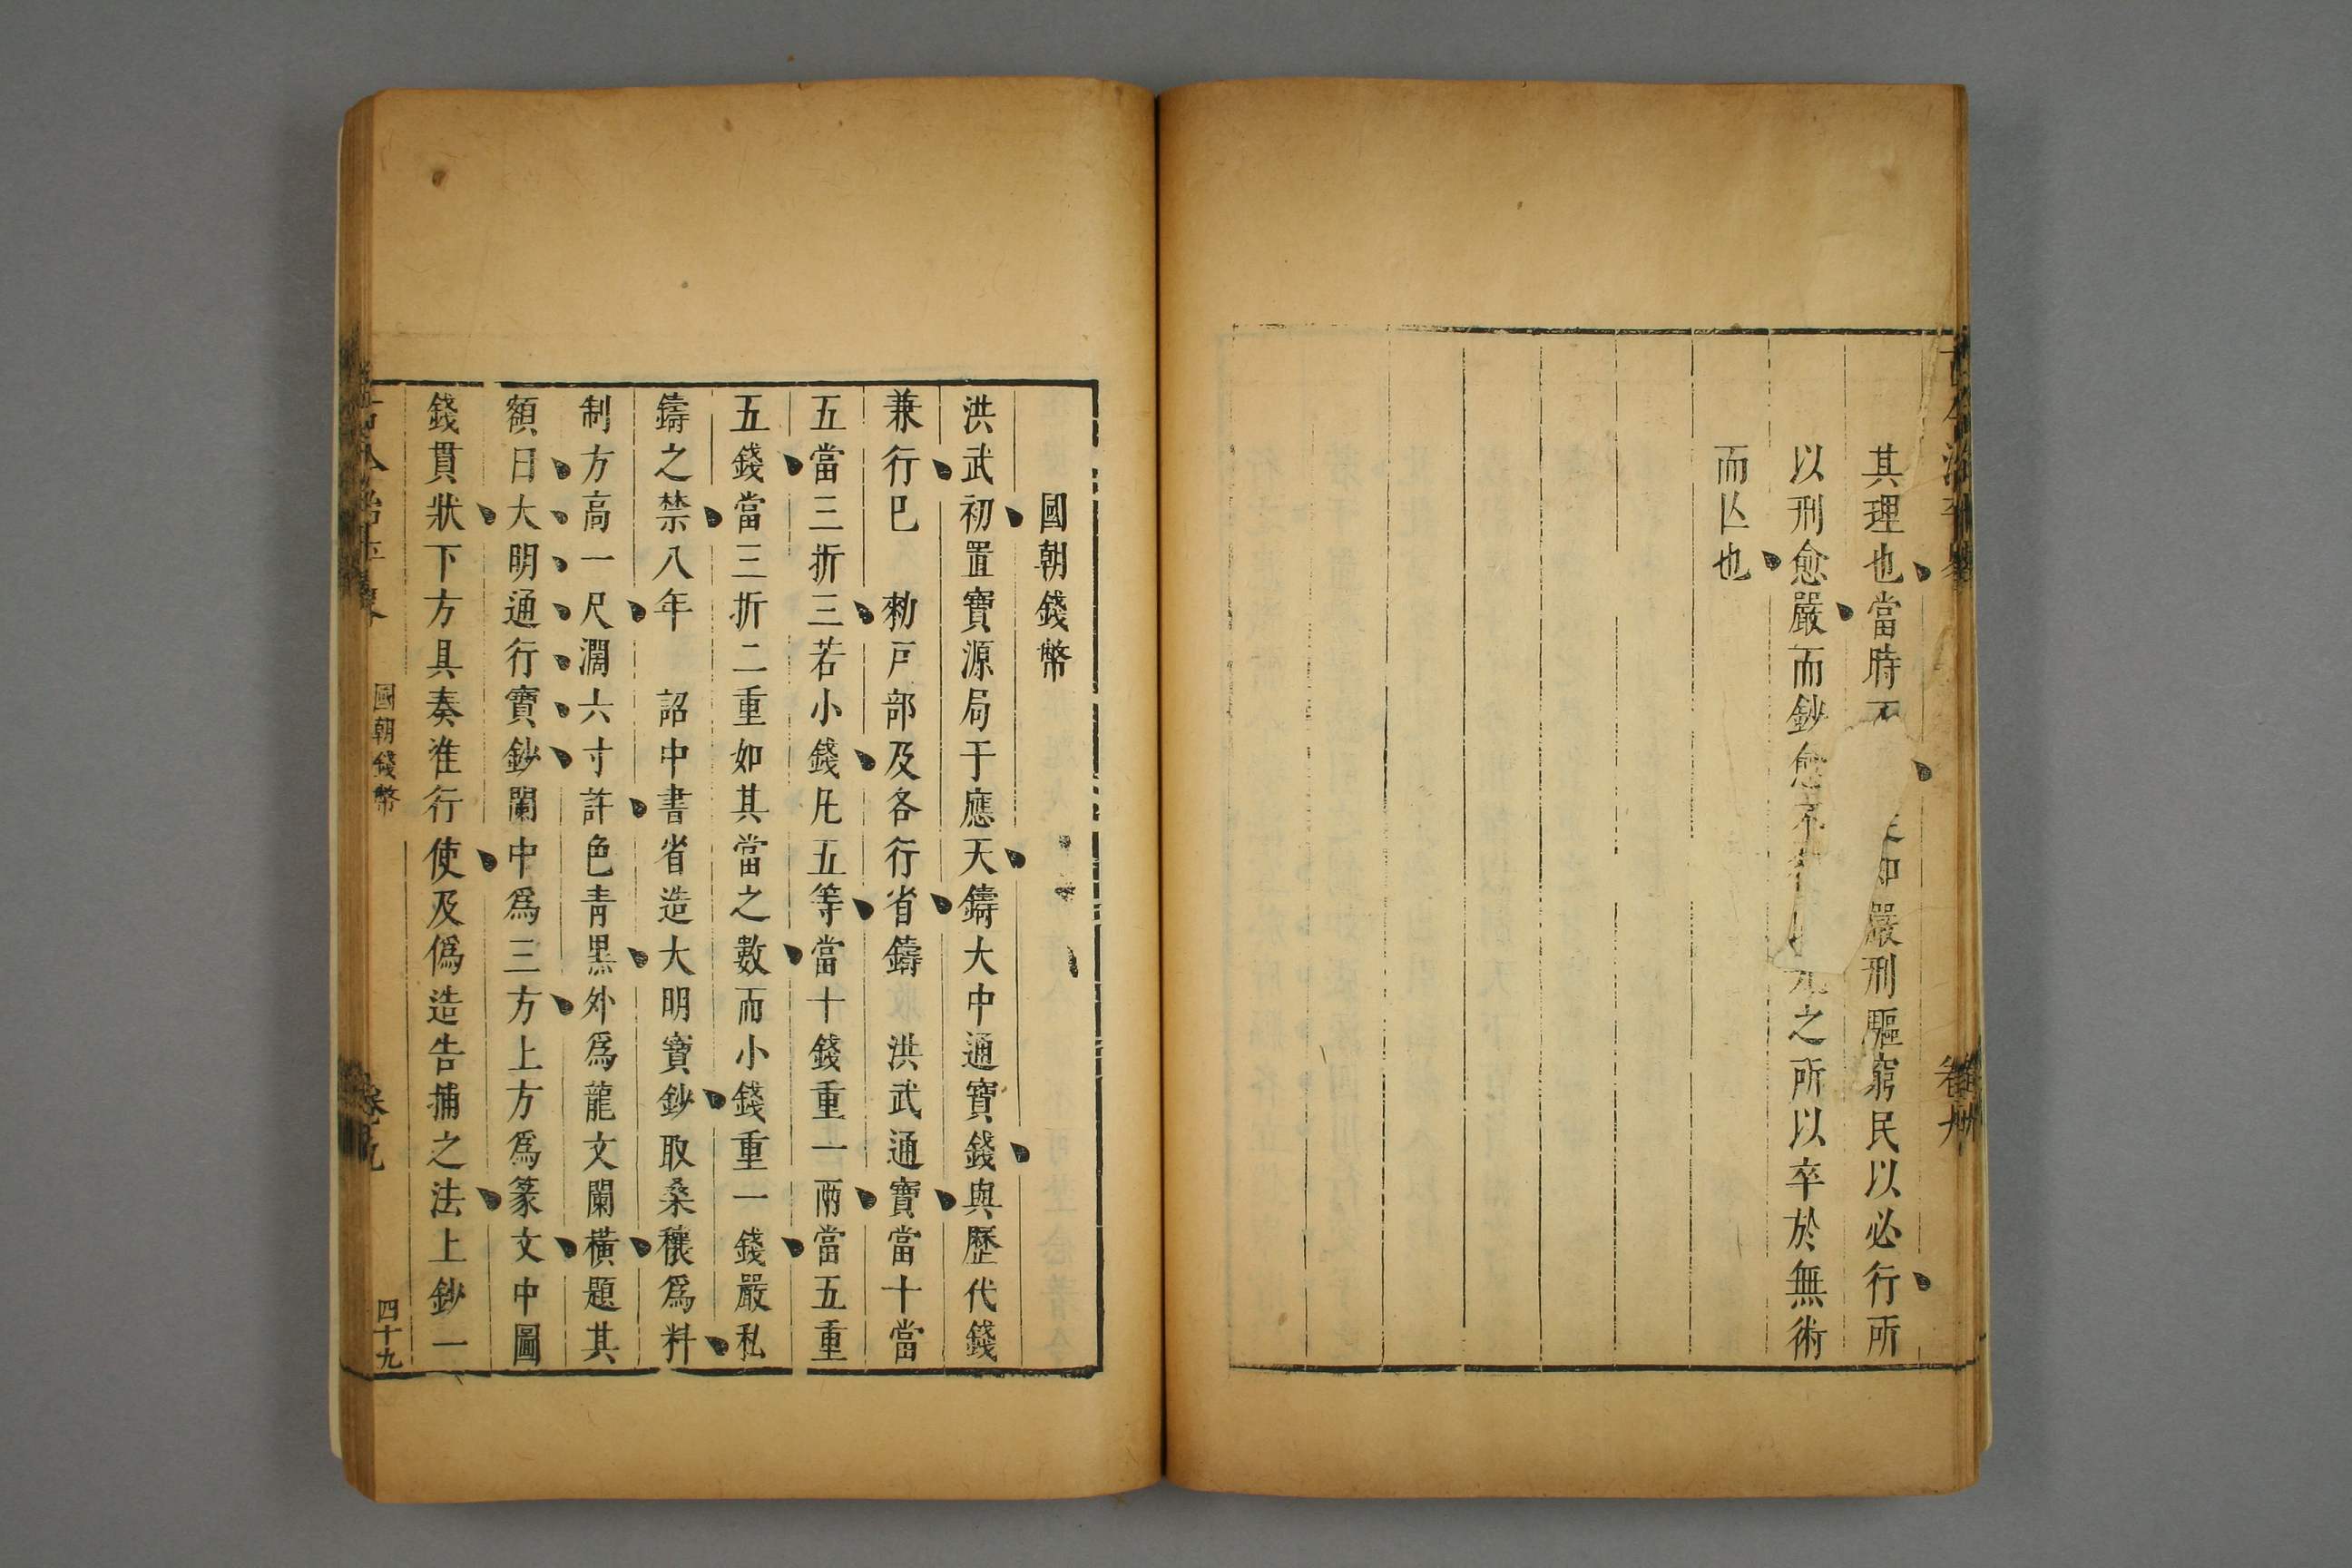 其理也當時不 知嚴刑驅窮民以必行所
以刑愈嚴而鈔愈不 元之所以卒於無術
而亾也
國朝錢幣
洪武初置寶源局于應天鑄大中通寶錢與歷代錢
兼行已 勑戸部及各行省鑄 洪武通寶當十當
五當三折三若小錢凡五等當十錢重一兩當五重
五錢當三折二重如其當之數而小錢重一錢嚴私
鑄之禁八年 詔中書省造大明寶鈔取桑穰爲料
制方高一尺濶六寸許色青黑外爲龍文闌橫題其
額曰大明通行寶鈔闌中爲三方上方爲篆文中圖
錢貫狀下方具奏准行使及僞造告捕之法上鈔一
國朝錢幣
四十九